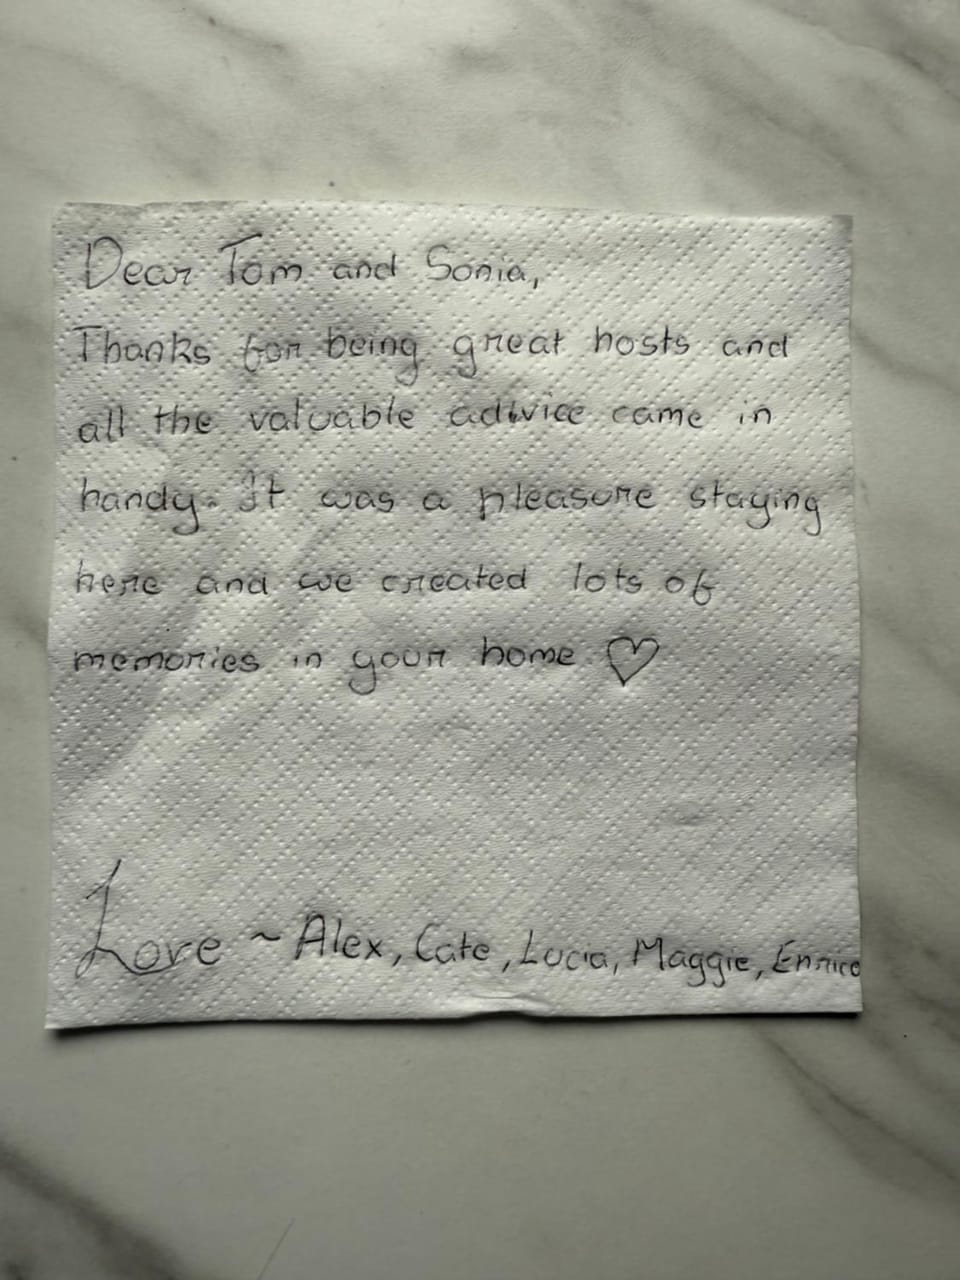 Dear Tom and Sonia,
Thanks for being great hosts and
all the valuable advice came in
handy. It was a pleasure staying
here and we created lots of
memories in your home ♡
Love ~ Alex, Cate, Lucia, Maggie, Enrico